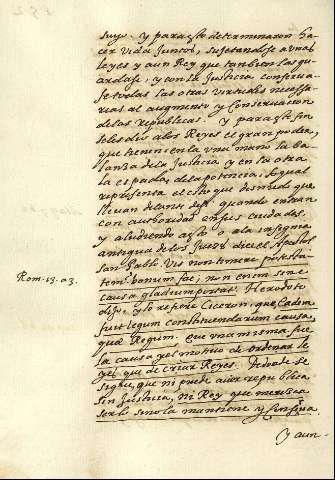 suyo. y para esto determinaron ha-
cer vida Juntos, sujetandose a unas
leyes y a un Rey que tambien las gu-
ardase, y con la Justicia conserva-
se todas las otras virtudes necessa-
rias al augmento y conservacion
de las republicas. y para este fin
se les dio a los Reyes el gran poder,
que tienen en la una mano la ba-
lanza de la Justicia y en la otra
la espada, de la potencia, la qual
representa el estoque desnudo que
llevan delante de si quando entran
con authoridad en sus ciudades.
y aludiendo a esto o a la insignia
antigua de los Jueces dice el Apostol
san Pablo. Vis non timere potesta-
Rom. 13. a 3.
tem? bonum fac; non enim sine
causa gladium portat. Herodoto
dijo, y lo refiere Ciceron, que Eadem
fuit legum constituendarum causa,
quæ Regum. Que una misma fue
la causa y el motivo de ordenar le-
yes que de criar Reyes. De donde se
sigue, que ni puede aver republica
sin Justicia, ni Rey que merezca
serlo sino la mantiene y conserva.
y aun